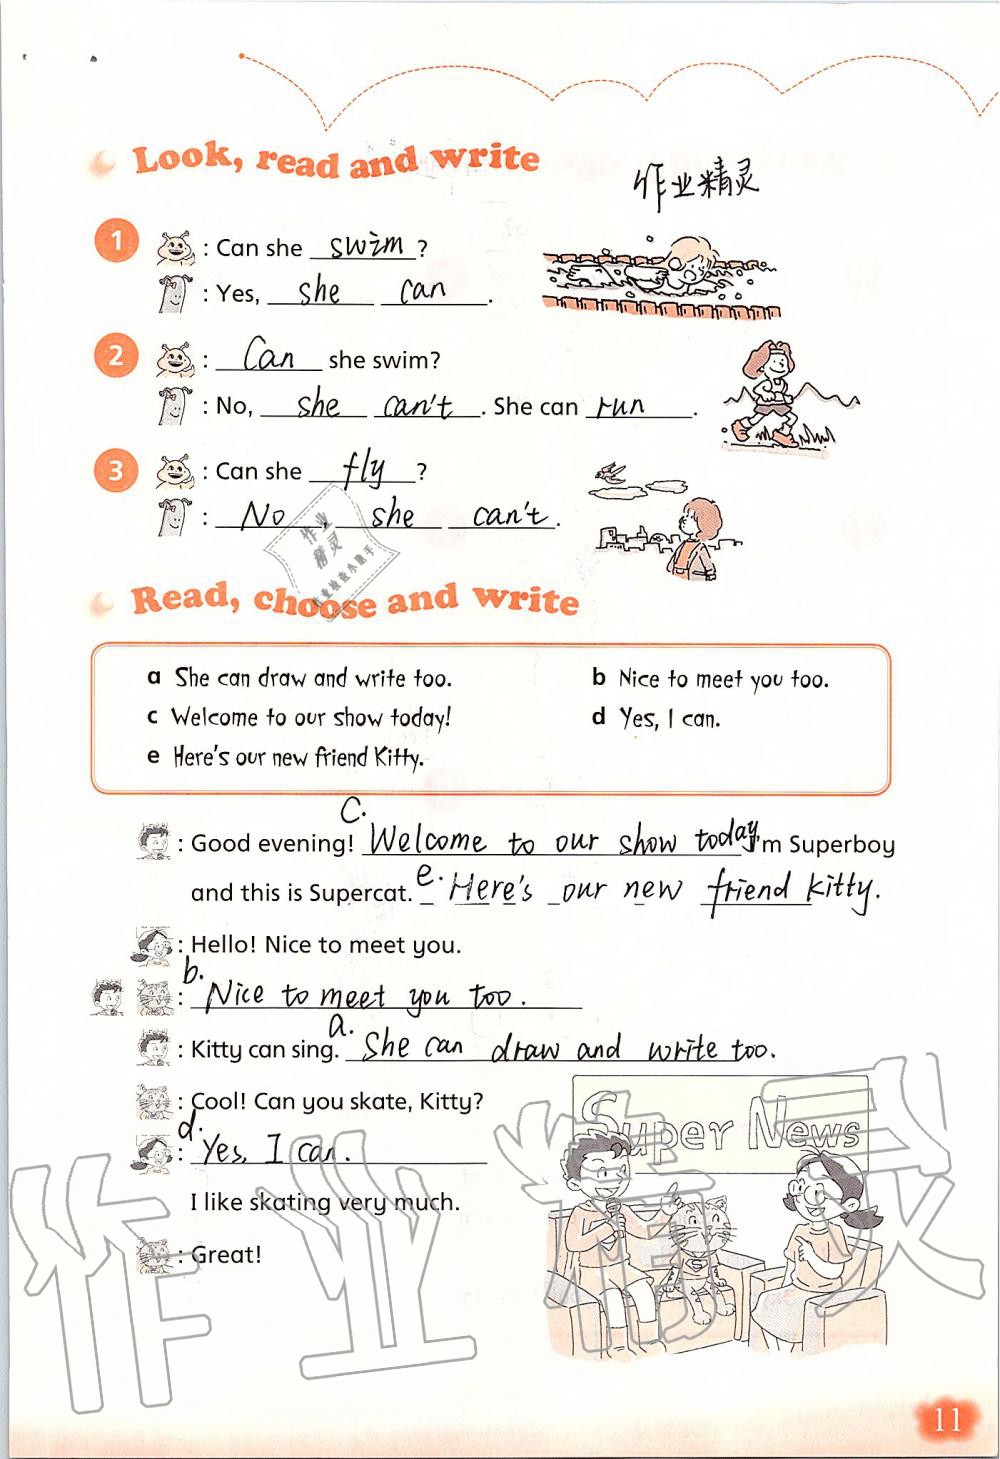 Look, read and write
作业精灵
1 : Can she swim ?
: Yes, she can .
2 : Can she swim?
: No, she can't . She can run .
3 : Can she fly ?
: No , she can't .
作业
精灵
Read, choose and write
a She can draw and write too.
b Nice to meet you too.
c Welcome to our show today!
d Yes, I can.
e Here's our new friend Kitty.
c.
: Good evening! Welcome to our show today I'm Superboy
and this is Supercat. e. Here's our new friend Kitty.
: Hello! Nice to meet you.
b.
: Nice to meet you too.
a.
: Kitty can sing. She can draw and write too.
: Cool! Can you skate, Kitty?
d.
: Yes, I can.
I like skating very much.
: Great!
Super News
S
作业精灵
11